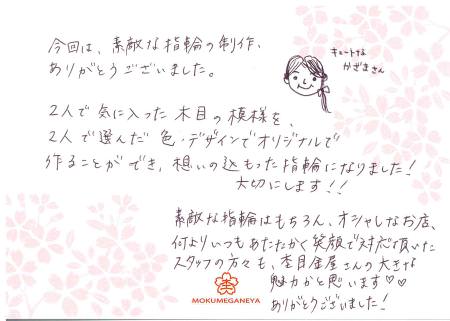 今回は、素敵な指輪の制作、
ありがとうございました。
キュートな
かざまさん
2人で気に入った木目の模様を、
2人で選んだ色・デザインでオリジナルで
作ることができ、想いの込もった指輪になりました！
大切にします！！
素敵な指輪はもちろん、オシャレなお店、
何よりいつもあたたかく笑顔で対応頂いた
スタッフの方々も、杢目金屋さんの大きな
魅力かと思います♡♡
ありがとうございました！
MOKUMEGANEYA